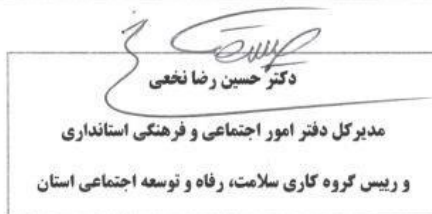 دکتر حسین رضا نخعی
مدیرکل دفتر امور اجتماعی و فرهنگی استانداری
و رییس گروه کاری سلامت، رفاه و توسعه اجتماعی استان